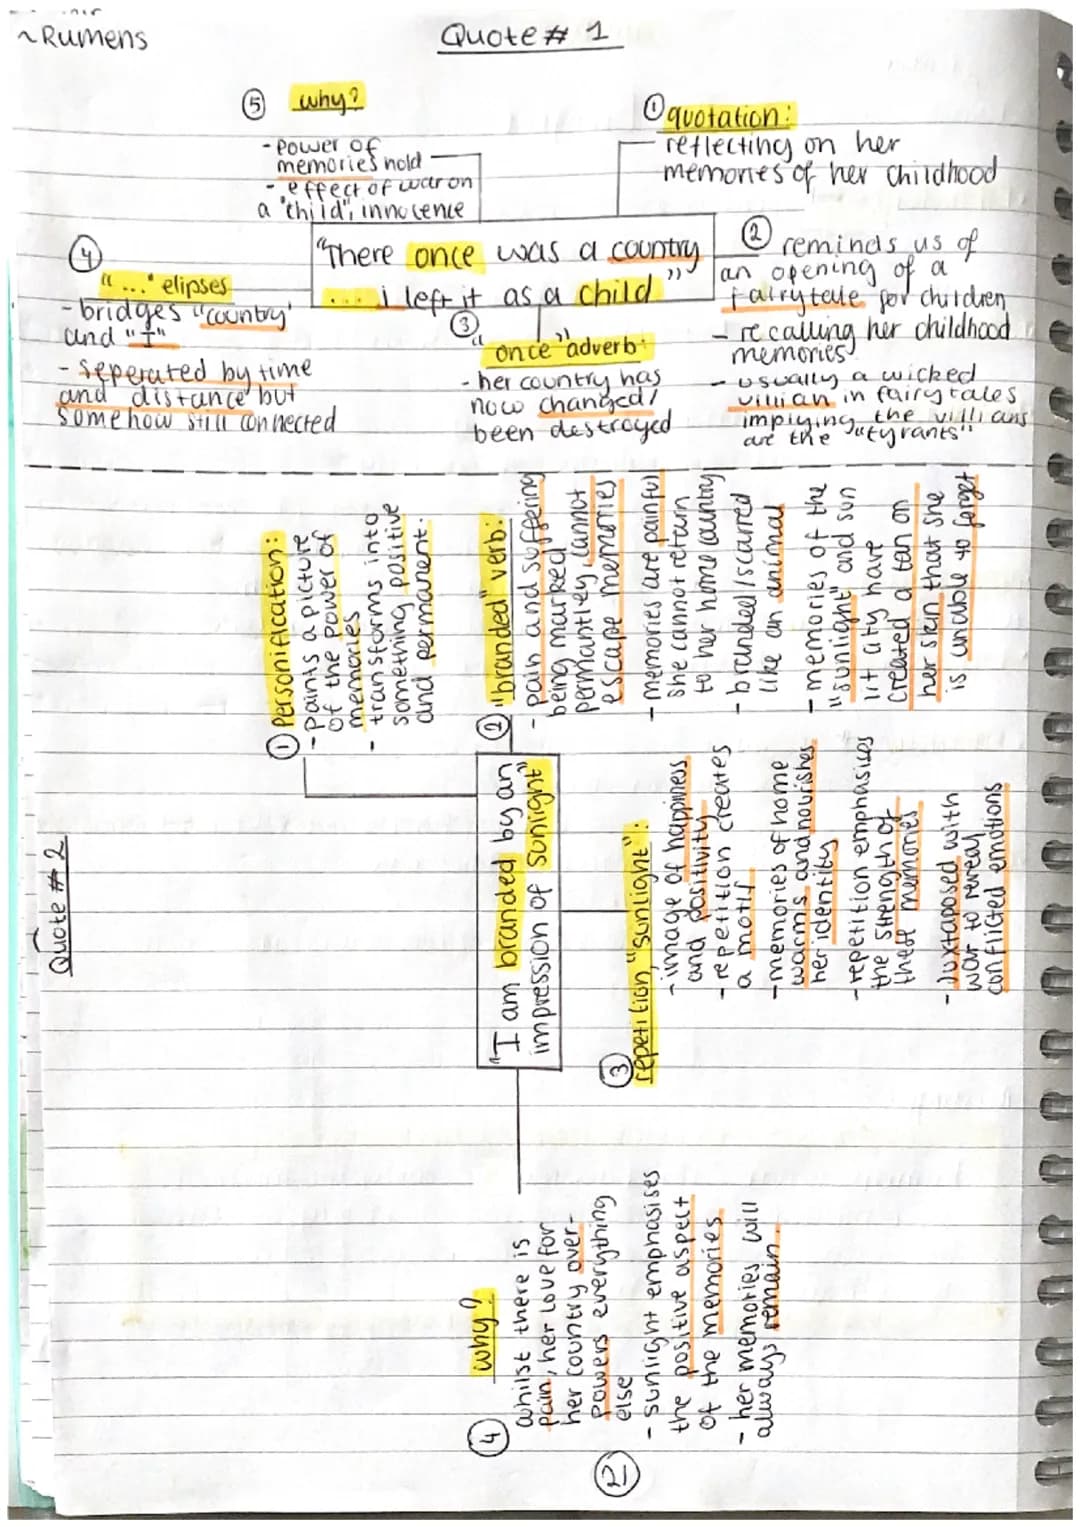 ~Rumens
Quote # 1
⑤ why?
- Power of
memories hold
- effect of war on
a "child", innocence
① quotation:
reflecting on her
memories of her childhood
"There once was a country
... i left it as a child"
② reminds us of
an opening of a
fairytale for children
- recalling her childhood
memories
- usually a wicked
villian in fairytales
implying the villians
are the "tyrants"
③
"once" adverb:
- her country has
now changed/
been destroyed
④
"..." elipses
- bridges "country"
and "I"
- seperated by time
and distance but
somehow still connected
Quote # 2
"I am branded by an
impression of sunlight"
① Personification:
- Paints a picture
of the power of
memories
- transforms into
something positive
and permanent.
② "branded" verb:
- pain and suffering
being marked
permantley, cannot
escape memories
- memories are painful
she cannot return
to her home country
- branded/scarred
like an animal
- memories of the
"sunlight" and sun
lit city have
created a tan on
her skin that she
is unable to forget
③ repetition, "sunlight":
- image of happiness
and positivity
- repetition creates
a motif
- memories of home
warms and nourishes
her identity
- repetition emphasises
the strength of
these memories
- Juxtaposed with
war to reveal
conflicted emotions
④ why?
whilst there is
pain, her love for
her country over-
powers everything
else
- sunlight emphasises
the positive aspect
of the memories.
- her memories will
always remain.
②